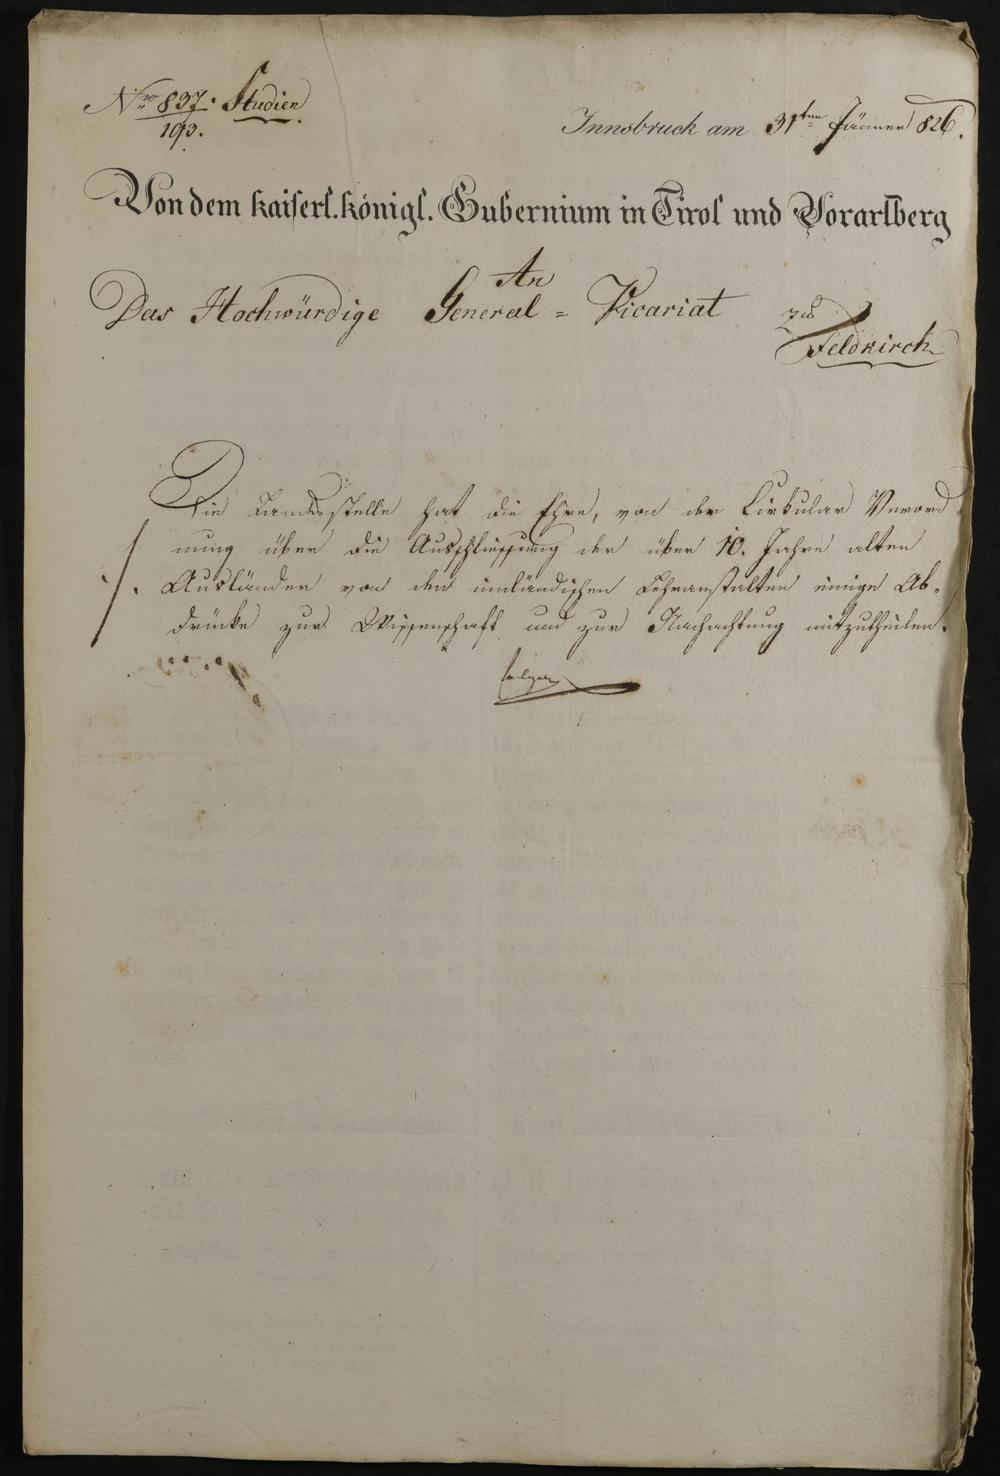 Nro 837. Studien
193.
Innsbruck am 31ten Jänner 826.
Von dem kaiserl. königl. Gubernium in Tirol und Vorarlberg
An
Das Hochwürdige General = Vicariat zu
Feldkirch
Die Landesstelle hat die Ehre, von der Cirkular Verord=
nung über die Ausschliessung der über 10. Jahre alten
./. Ausländer von den innländischen Lehranstalten einige Ab=
drücke zur Wissenschaft und zur Nachachtung mitzutheilen.